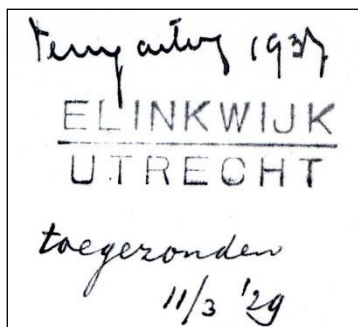 1937
ELINKWIJK
UTRECHT
toegezonden
11/3 '29